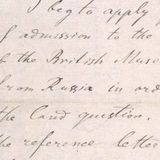 I beg to apply
f admission to the
f the British Muse
from Russia in ord
the Land question.
he reference letter